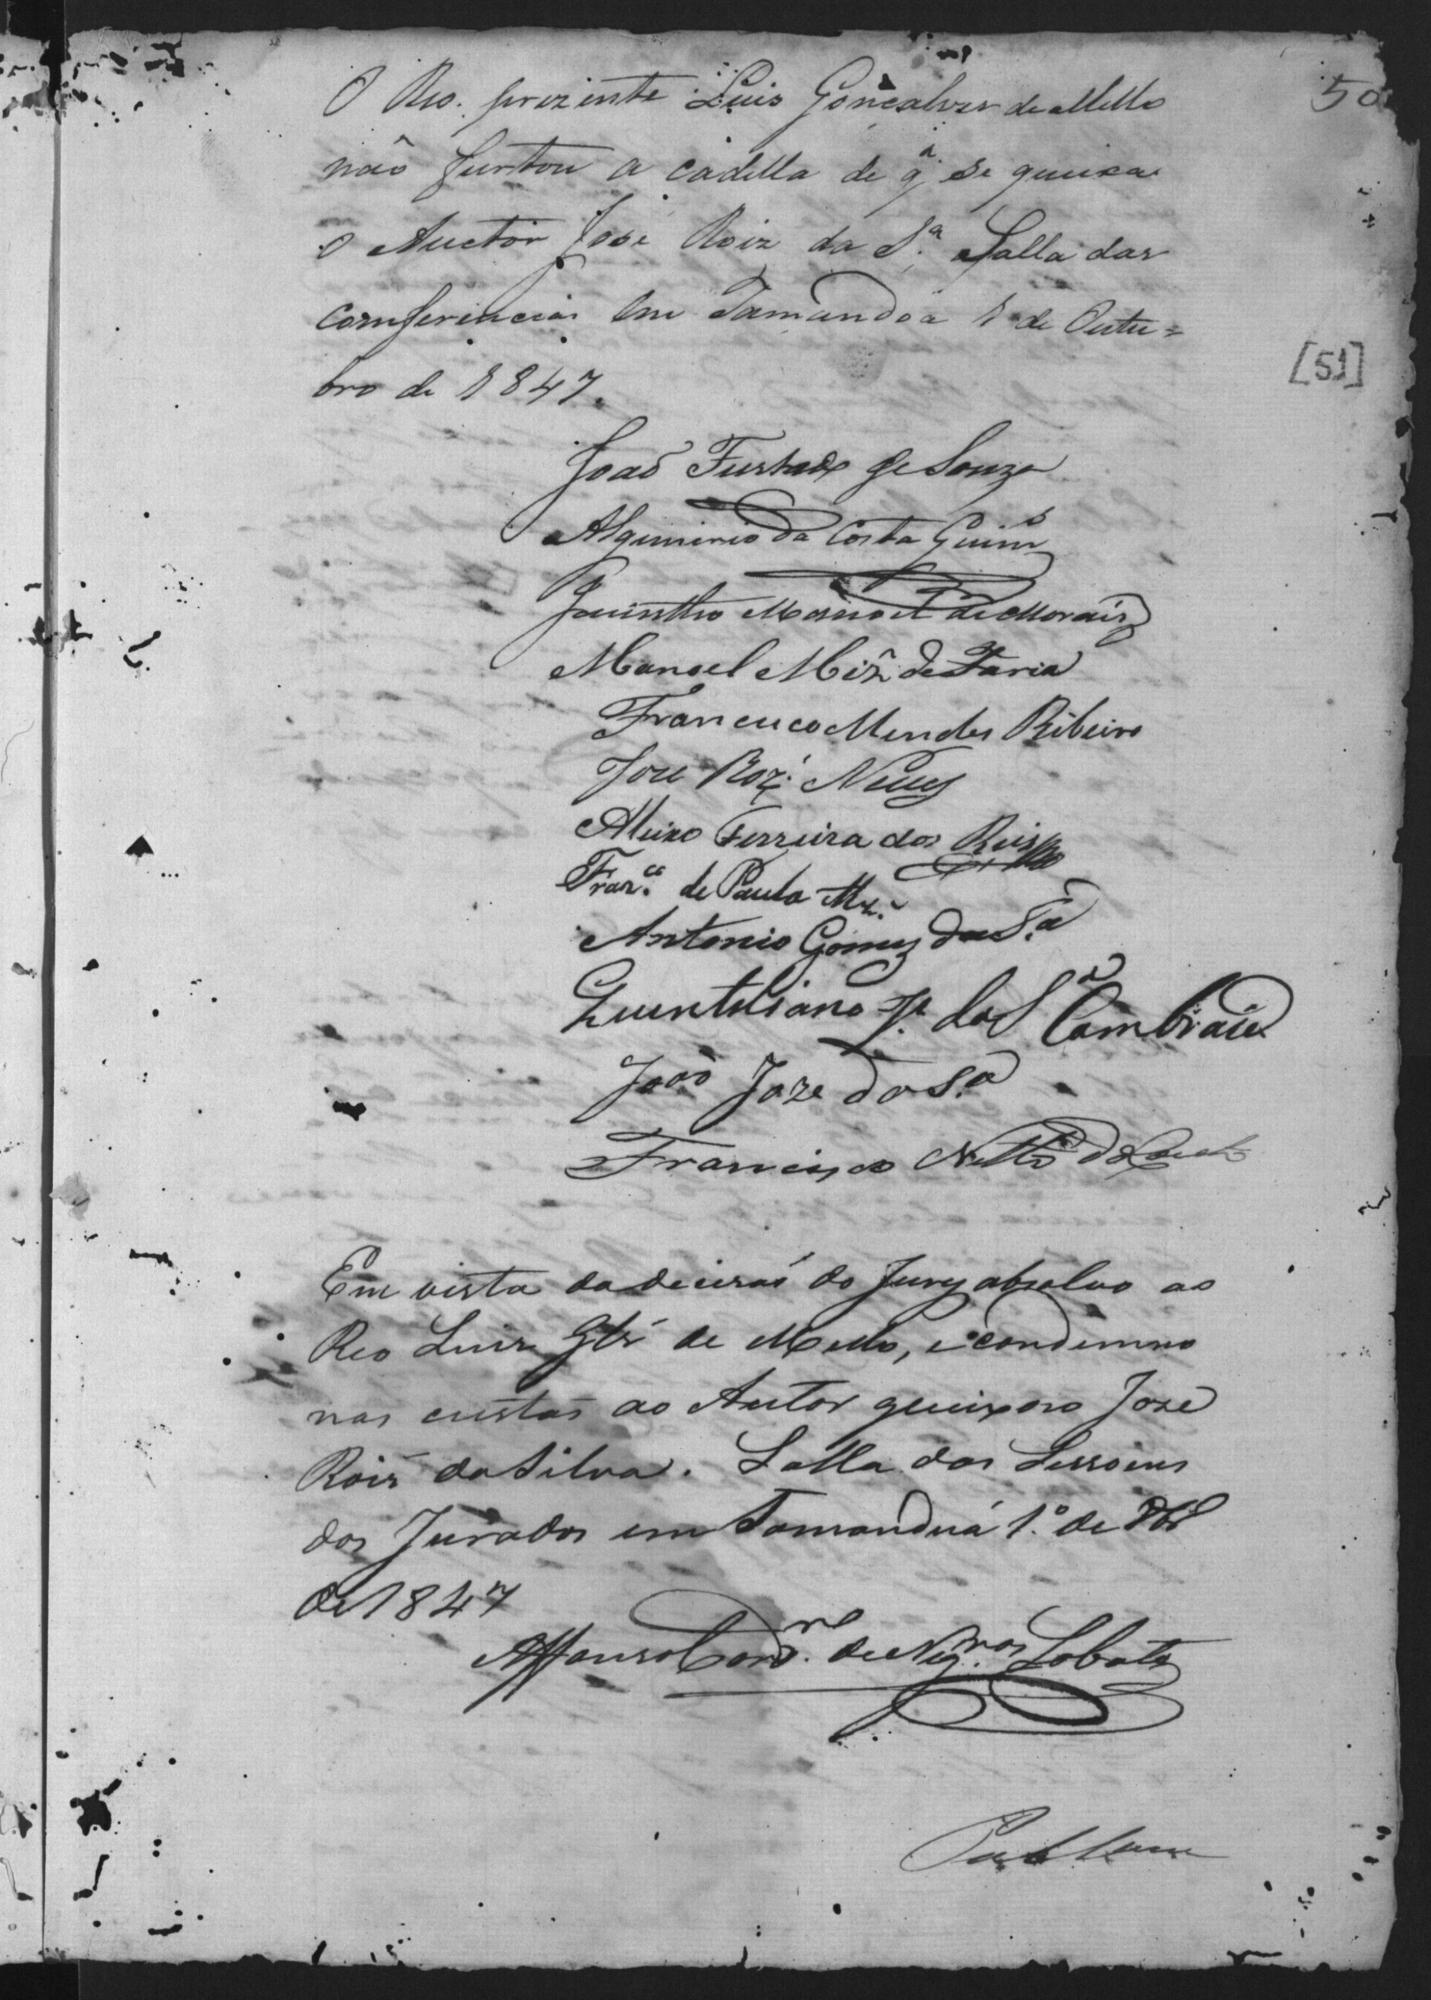 50
O Reo prezente Luis Gonçalves de Mello
não furtou a cadella de q. se queixa
o Auctor José Roiz da S.ª Salla das
comferencias em Tamandoá 1 de Outu=
bro de 1847.
[51]
João Furtado de Souza
Algimirio da Costa Guim.s
Jacintho Manoel de Morais
Manoel Miz de Faria
Francisco Mendes Ribeiro
Joze Roz. Neves
Aleixo Ferreira dos Reis
Fran.co de Paula Mz.
Antonio Gomez da S.ª
Quintiliano Je. da S.ª Cambraia
João Joze da S.ª
Francisco Netto da Costa
Em vista da decisaõ do Jury absolvo ao
Reo Luis Glz de Mello, e condemno
nas custas ao Autor queixoso Joze
Roiz da Silva. Salla das Sessoens
dos Jurados em Tamanduá 1.º de 8br.º
de 1847
Affonso Cord.ro de Neg.ros Lobato